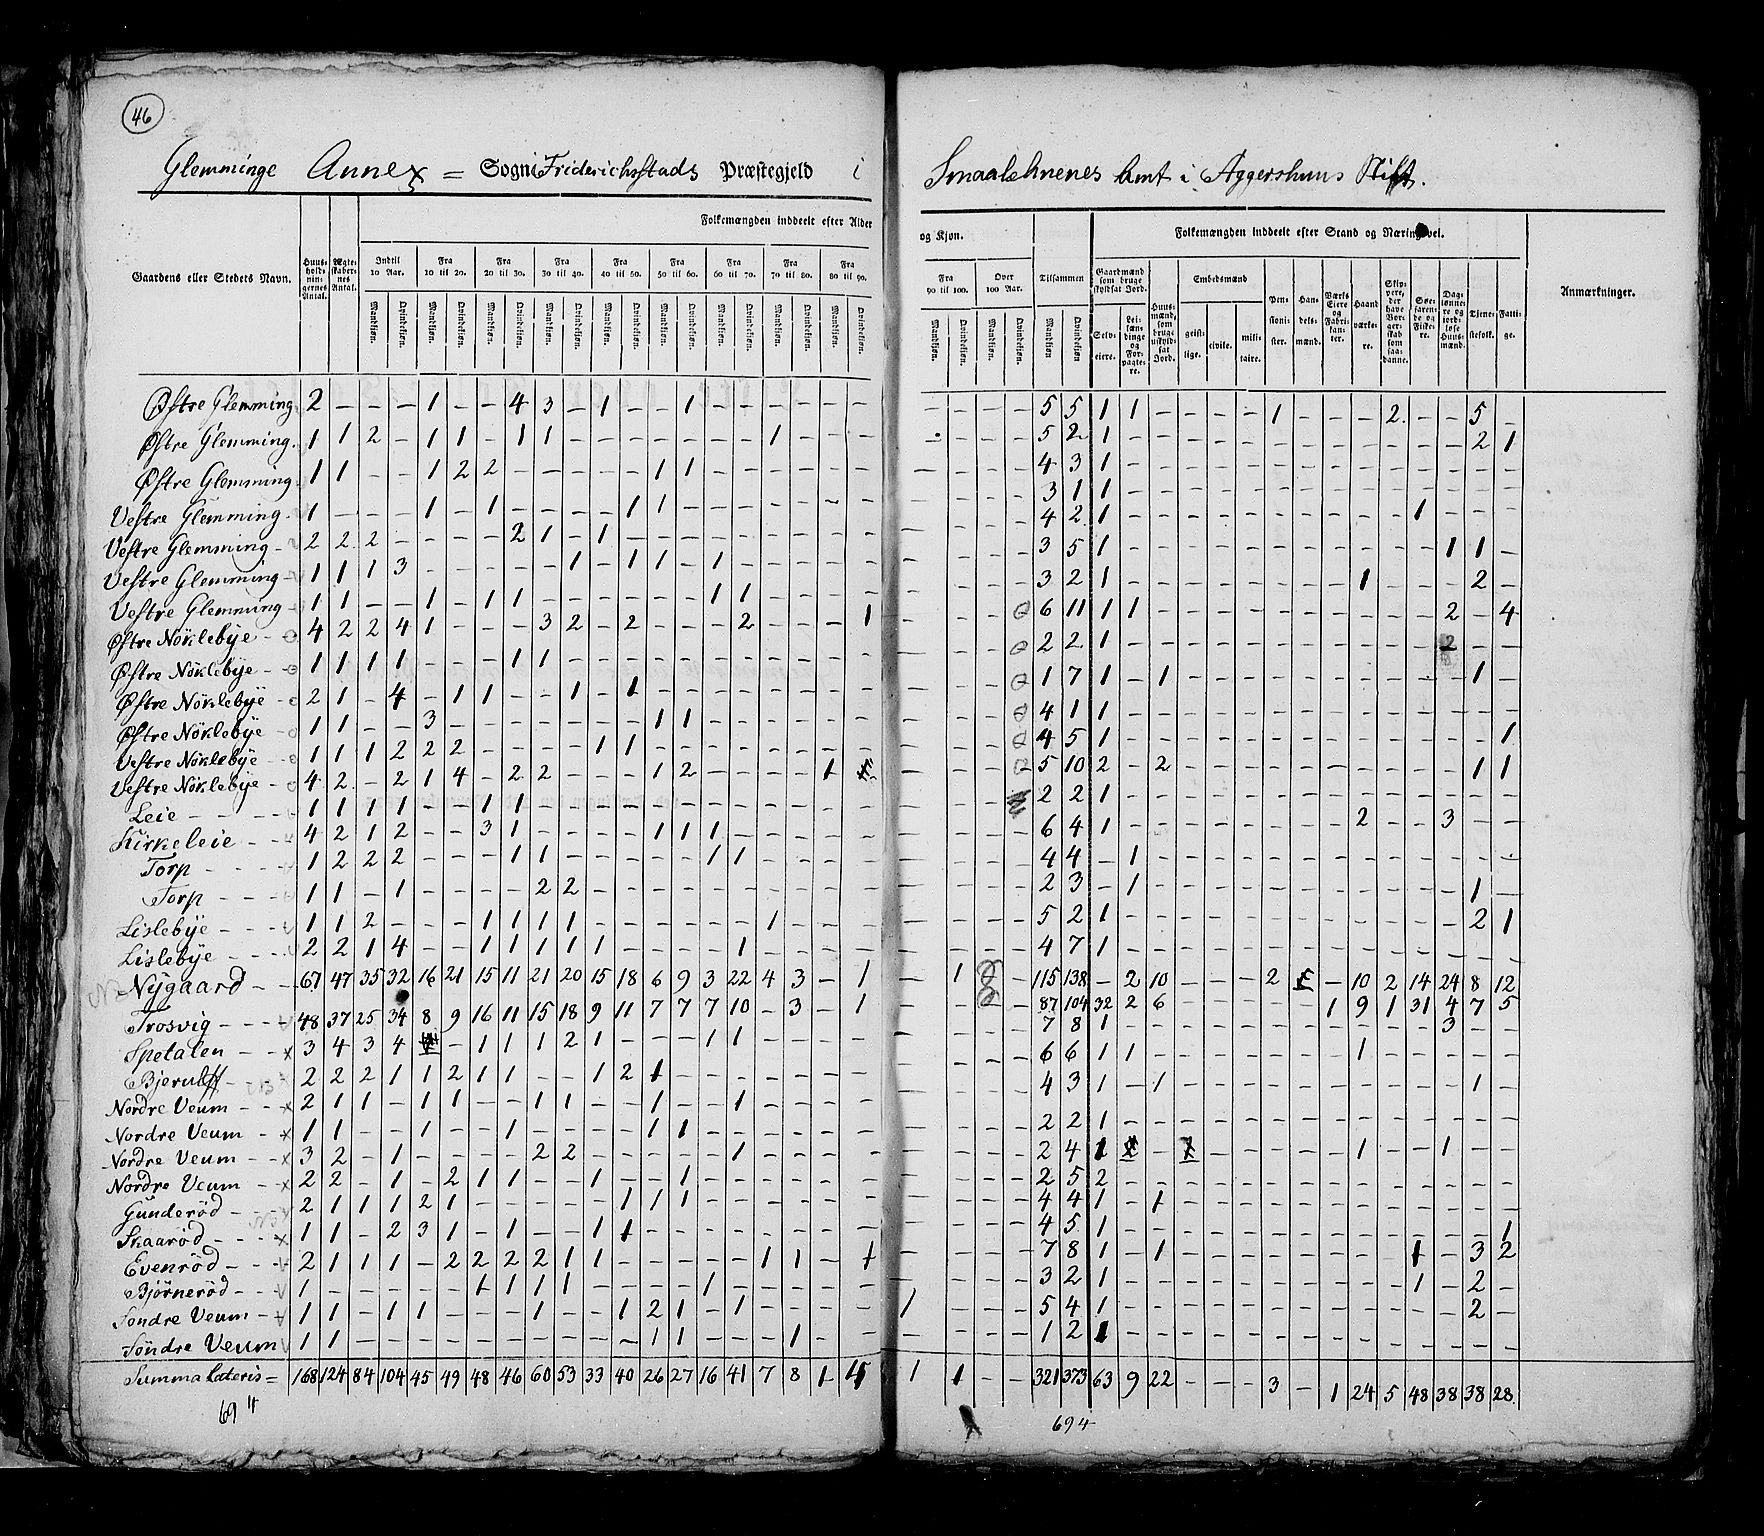 46
Glemminge Annex = Sogn i Friderichsstads Præstegjeld i Smaalehnenes Amt i Aggershuus Stift.
Folkemængden inddeelt efter Alder og Kjøn.
Folkemængden inddeelt efter Stand og Næringsvei.
Gaardens eller Stedets Navn. Huusholdningernes Antal. Ægteskabernes Antal. Indtil 10 Aar. Fra 10 til 20. Fra 20 til 30. Fra 30 til 40. Fra 40 til 50. Fra 50 til 60. Fra 60 til 70. Fra 70 til 80. Fra 80 til 90. Fra 90 til 100. Over 100 Aar. Tilsammen
Mandkjøn. Qvindekjøn. Mandkjøn. Qvindekjøn. Mandkjøn. Qvindekjøn. Mandkjøn. Qvindekjøn. Mandkjøn. Qvindekjøn. Mandkjøn. Qvindekjøn. Mandkjøn. Qvindekjøn. Mandkjøn. Qvindekjøn. Mandkjøn. Qvindekjøn. Mandkjøn. Qvindekjøn. Mandkjøn. Qvindekjøn. Mandkjøn Qvindekjøn
Gaardmænd som bruge skyldsat Jord. Selveiere. Leilændinge og Forpagtere. Huusmænd, som bruge uskyldsat Jord. Embedsmænd geistlige. civile. militaire. Pensionister. Handelsmænd. Værks Eiere og Fabrikanter. Haandværkere. Skippere, der have Borgerskab som saadanne. Søefarende og Fiskere. Daglønnere og jordløse Huusmænd. Tjenestefolk. Fattige.
Anmærkninger.
Østre Glemming 2 – – – 1 – – 4 3 – 1 – – 1 – – – – – – – – – – 5 5 1 1 – – – – 1 – – – 2. – – 5 –
Østre Glemming. 1 1 2 – 1 1 – 1 1 – – – – – – – 1 – – – – – – – 5 2 1 – – – – – – – – – – – – 2 1
Østre Glemming. 1 1 – – 1 2 2 – – – – – 1 1 – – – – – – – – – – 4 3 1 – – – – – – – – – – – – – –
Vestre Glemming. 1 – – – 1 – 1 – – – – 1 1 – – – – – – – – – – – 3 1 1 – – – – – – – – – – – – – –
Vestre Glemming – 2 2 2 – – – – 2 1 – 1 – – – – – – – – – – – – – 4 2 1 – – – – – – – – – – 1 – – –
Vestre Glemming – 1 1 1 3 – – – – – 1 – 1 1 – 1 – – – – – – – – – 3 5 1 – – – – – – – – – – – 1 1 –
Vestre Glemming 1 1 – – 1 – 1 1 – – – – – – 1 1 – – – – – – – – 3 2 1 – – – – – – – – 1 – – – 2 –
Østre Nöklebÿe – 4 2 2 4 1 – – – 3 2 – 2 – – – 2 – – – 1 – – – – 6 11 1 1 – – – – – – – – – – 2 – 4
Østre Nöklebÿe – 1 1 1 1 – – – 1 1 – – – – – – – – – – – – – – – 2 2 1 – – – – – – – – – – – 2 – –
Østre Nöklebÿe – 2 1 – 4 – 1 1 – – 1 – 1 – – – – – – – – – – – – 1 7 1 – 1 – – – – – – – – – – 1 –
Østre Nöklebÿe 1 1 – – 3 – – – – – – – 1 1 – – – – – – – – – – 4 1 1 – – – – – – – – – – – – – –
Vestre Nöklebÿe – 1 1 1 2 2 2 – – – – 1 1 – – – – – – – – – – – – 4 5 1 – – – – – – – – – – – – – 1
Vestre Nöklebÿe – 4 2 – 2 1 4 – 2 2 – – – 1 2 – – – – 1 – – – – 5 10 2 – 2 – – – – – – – – – – 1 1
Leie – – – 1 1 1 1 – – 1 1 – – – – – – – – – – – – – – – – 2 2 1 – – – – – – – – – – – – – –
Kirkeleie – – 4 2 1 2 – – 3 1 – – – – 1 1 1 – – – – – – – – – 6 4 1 – – – – – – – – 2 – – 3 – –
Torp – – – 1 2 2 2 – – – 1 1 – – – – – 1 1 – – – – – – – – 4 4 – 1 – – – – – – – – – – – – –
Torp – – – 1 1 – 1 – – – – 2 2 – – – – – – – – – – – – – – 2 3 – 1 – – – – – – – – – – – 1 –
Lislebÿe – – – 1 1 2 – – – 1 1 1 1 – – – – – – 1 – – – – – – – 5 2 1 – – – – – – – – – – – – 2 1
Lislebÿe – – – 2 2 1 4 – – 1 1 1 1 1 – – – – 1 – – – – – – – – 4 7 1 – – – – – – – – – – – – – –
Nÿgaard – – 67 47 35 32 16 21 15 11 21 20 15 18 6 9 3 22 4 3 – 1 – 1 – – 115 138 – 2 10 – – – 2 – – 10 2 14 24 8 12
Trosvig – – – 48 37 25 34 8 9 16 11 15 18 9 11 7 7 7 10 – 3 – 1 – – – – 87 104 32 2 6 – – – – – 1 9 1 31 4 7 5
Spetalen – – 3 4 3 4 – – 1 1 1 2 1 – – – 1 1 – – – – – – – – 7 8 1 – – – – – – – – – – – 3 – –
Bjerulff – 2 2 2 1 1 2 1 1 – – 1 2 1 – – – – – – – – – – – 6 6 1 1 – – – – – – – 1 – – – – –
Nordre Veum – – 2 1 1 – 1 1 – – 1 1 – – 1 – – 1 – – – – – – – – 4 3 1 – 1 – – – – – – – – – – 1 –
Nordre Veum – 1 1 – – 1 – – 1 – – – – 1 1 – – – – – – – – – – 2 2 1 – – – – – – – – – – – – – –
Nordre Veum – – 3 2 – 1 – – – – 2 2 – – – – – 1 – – – – – – – – 2 4 1 – – – – – – – – 1 – – 1 – –
Nordre Veum – – 2 2 – 1 – 2 1 1 – – 1 – – 1 – – – – – – – – – – 2 5 2 – – – – – – – – – – – – – –
Gunderöd – – 2 1 1 1 2 1 – – – – – 1 1 1 – – – – – – – – – – 4 4 1 – 1 – – – – – – – – – – – –
Skaaröd – – – 1 1 – 2 3 1 – 1 – – 1 1 – – – – – – – – – – – – 4 5 1 – – – – – – – – – – – – – 1
Evenröd – – – 2 1 1 1 – 2 2 2 2 1 1 – – – – – 1 1 – 1 – – – – 7 8 1 – 1 – – – – – – – – 1 – 3 2
Bjørneröd – – 1 – – – – – 1 1 1 1 – – – – 1 – – – – – – – – – 3 2 1 – – – – – – – – – – 1 – 2 –
Söndre Veum – 1 1 – 1 1 – – – 1 – – 1 2 1 – 1 – – – – 1 – – – 5 4 1 – – – – – – – – – – – – 2 –
Söndre Veum 1 1 – – – – – – – – – – 1 1 – – – 1 – – – – – – 1 2 1 – – – – – – – – – – – – – –
Summa Lateris = 168 124 84 104 45 49 48 46 60 53 33 40 26 27 16 41 7 8 1 5 1 1 – – 321 373 63 9 22 – – – 3 – 1 24 5 48 38 38 28.
694
694